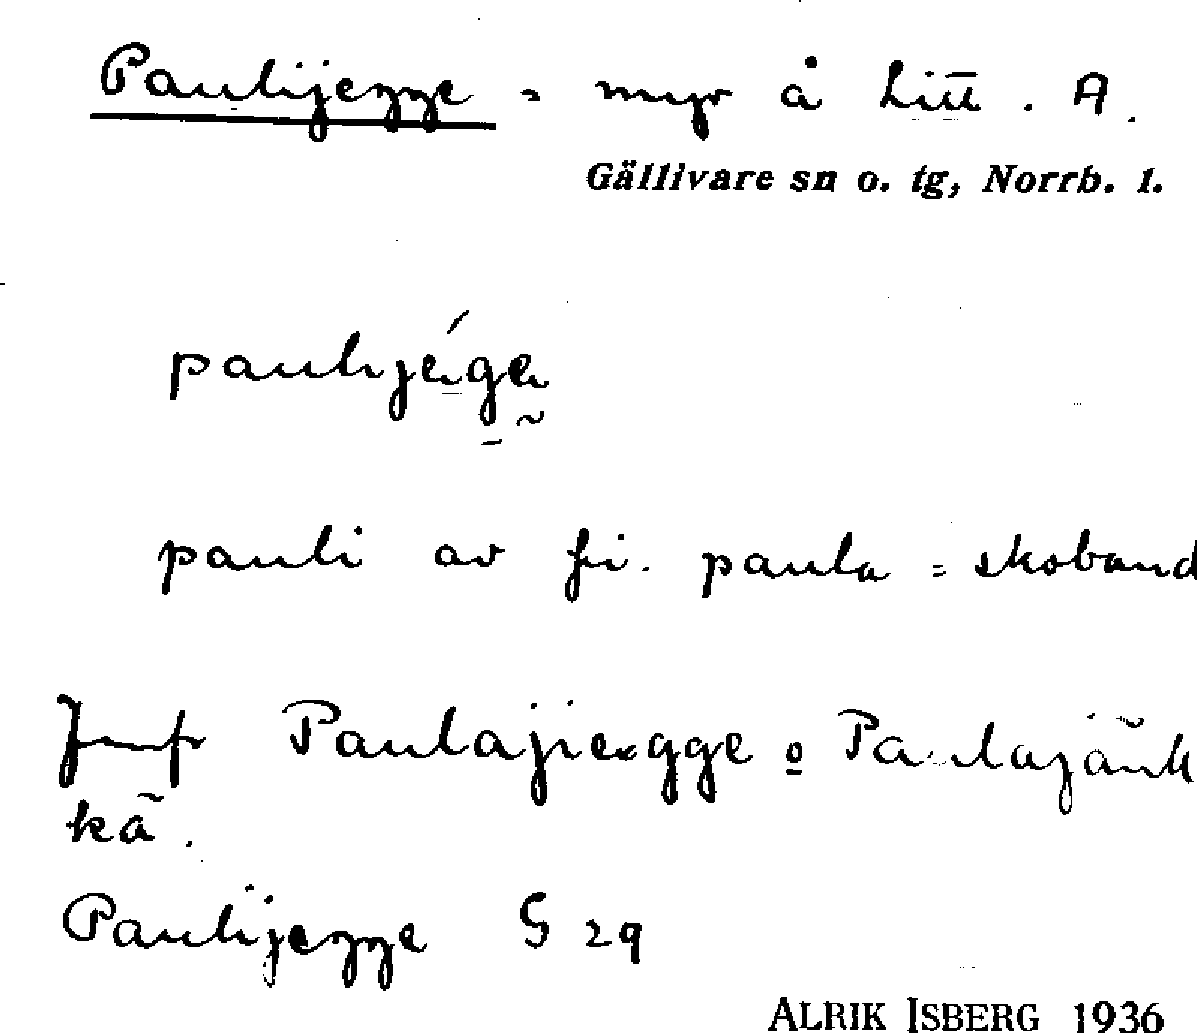 Paulijegge = myr å Litt. A.
Gällivare sn o. tg, Norrb. l.
pauli av fi. paula = skoband
Jmf Paulajieǥgge o Paulajänk
kä.
Paulijegge G 29
ALRIK ISBERG 1936